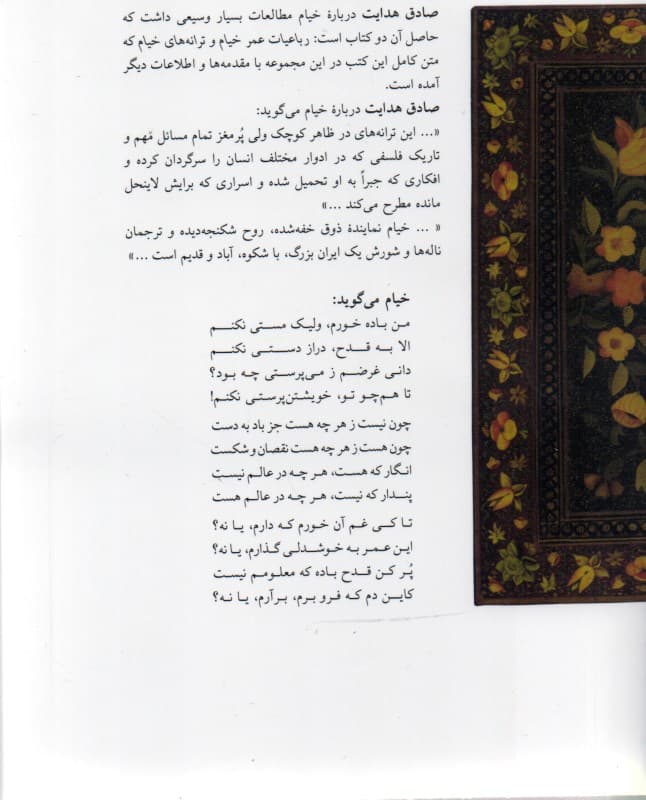 صادق هدایت دربارهٔ خیام مطالعات بسیار وسیعی داشت که
حاصل آن دو کتاب است: رباعیات عمر خیام و ترانه‌های خیام که
متن کامل این کتب در این مجموعه با مقدمه‌ها و اطلاعات دیگر
آمده است.
صادق هدایت دربارهٔ خیام می‌گوید:
«... این ترانه‌های در ظاهر کوچک ولی پُرمغز تمام مسائل مهم و
تاریک فلسفی که در ادوار مختلف انسان را سرگردان کرده و
افکاری که جبراً به او تحمیل شده و اسراری که برایش لاینحل
مانده مطرح می‌کند ...»
« ... خیام نمایندهٔ ذوق خفه‌شده، روح شکنجه‌دیده و ترجمان
ناله‌ها و شورش یک ایران بزرگ، با شکوه، آباد و قدیم است ...»
خیام می‌گوید:
من باده خورم، ولیک مستی نکنم
الا به قدح، دراز دستی نکنم
دانی غرضم ز می‌پرستی چه بود؟
تا هم‌چو تو، خویشتن‌پرستی نکنم!
چون نیست ز هر چه هست جز باد به دست
چون هست ز هر چه هست نقصان و شکست
انگار که هست، هر چه در عالم نیست
پندار که نیست، هر چه در عالم هست
تا کی غم آن خورم که دارم، یا نه؟
این عمر به خوشدلی گذارم، یا نه؟
پُر کن قدح باده که معلومم نیست
کاین دم که فرو برم، برآرم، یا نه؟